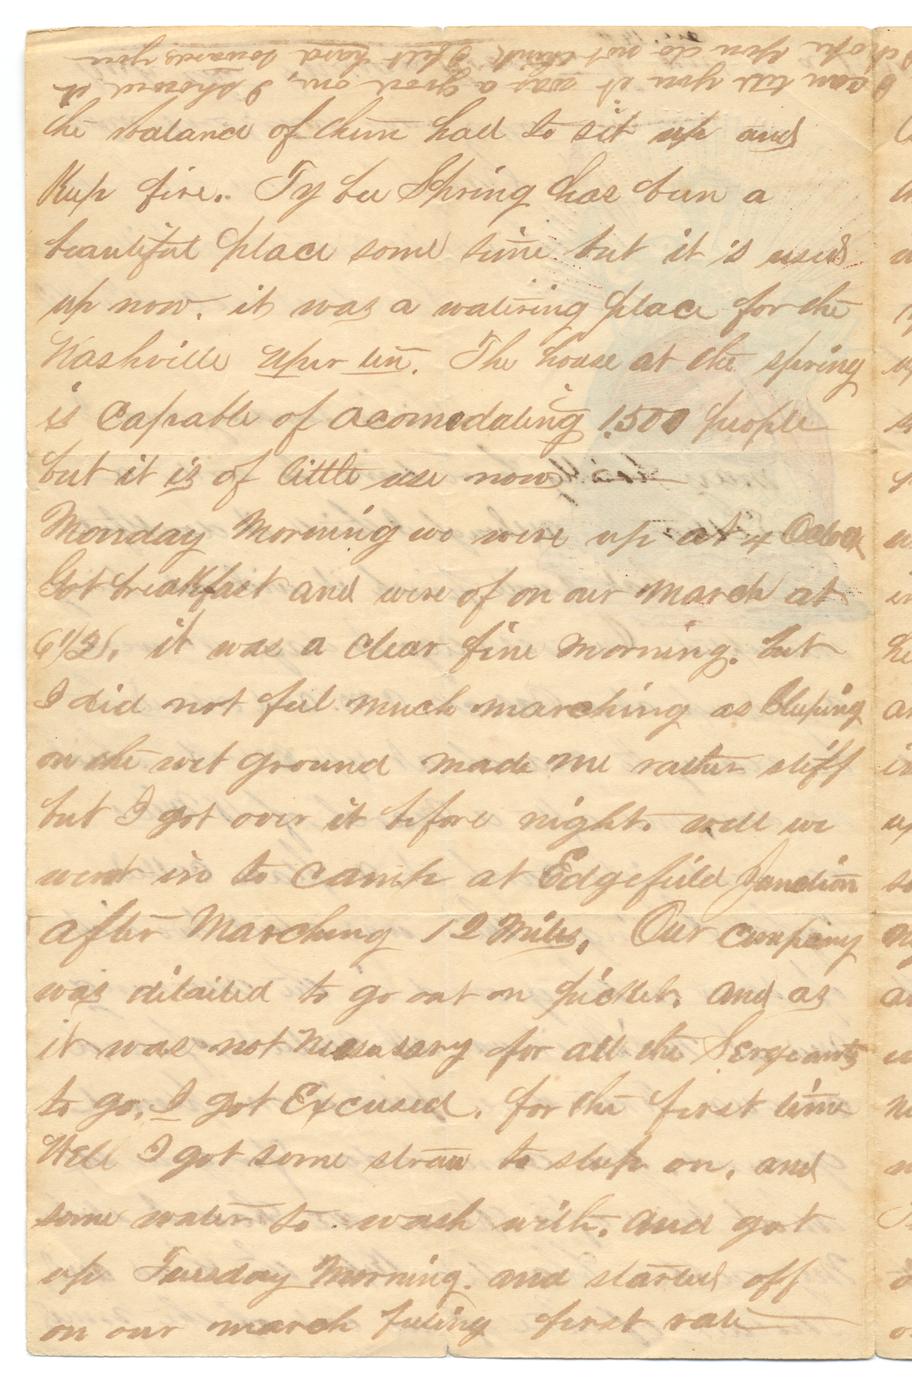 I hope you do not think I felt hard towards you
I can tell you it was a good one, I showed it
the balance of them had to sit up and
Keep fire. Tybee Spring has been a
beautiful place some time but it is used
up now. it was a watering place for the
Nashville uper ten. The house at the spring
is capable of acomodating 1500 people
but it is of little use now
Monday Morning we were up at 4 Oclock
Got breakfast and were of on our march at
6 1/2. it was a clear fine morning. but
I did not feel much marching as Sleeping
on the wet ground made me rather stiff
but I got over it before night. well we
went in to camp at Edgefield Junction
after Marching 12 Miles. Our company
was ditailed to go out on picket. and as
it was not Necessary for all the Sergeants
to go, I got Excused. for the first time
Well I got some straw to sleep on, and
some water to wash with. and got
up Tuesday Morning. and started off
on our march feeling first rate